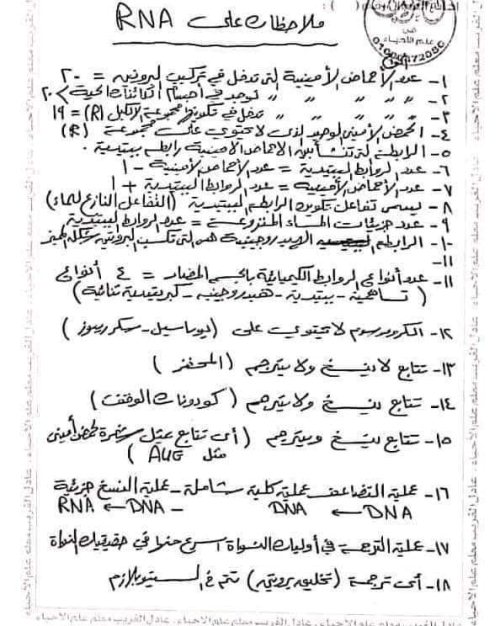 ملاحظات على RNA
فى
علم الأحياء
١- عدد الأحماض الأمينية التى تدخل فى تركيب البروتين = ٢٠
٢- " " " " توجد فى أجسام الكائنات الحية > ٢٠
٣- " " " " تدخل فى تكوينها مجموعة الألكيل (R) = ١٩
٤- الحمض الأمينى الوحيد الذى لا يحتوى على مجموعة (R)
٥- الرابطة التى تنشأ بين الأحماض الأمينية رابطة ببتيدية .
٦- عدد الروابط الببتيدية = عدد الأحماض الأمينية - ١
٧- عدد الأحماض الأمينية = عدد الروابط الببتيدية + ١
٨- يسمى تفاعل تكوين الرابطة الببتيدية (التفاعل النازع للماء)
٩- عدد جزيئات الماء المنزوعة = عدد الروابط الببتيدية
١٠- الرابطة الهيدروجينية هى التى تكسب البروتين شكله المميز
١١-
١١- عدد أنواع الروابط الكيميائية بالجسم المضاد = ٤ أنواع
( تساهمية - ببتيدية - هيدروجينية - كبريتيدية ثنائية )
١٢- الكروموسوم لا يحتوى على ( يوراسيل - سكر ريبوز )
١٣- تتابع لا ينسخ ولا يترجم ( المحفز )
١٤- تتابع ينسخ ولا يترجم ( كودونات الوقف )
١٥- تتابع ينسخ ويترجم ( أى تتابع يمثل شفرة لحمض أمينى
مثل AUG )
١٦- عملية التضاعف عملية كلية شاملة - عملية النسخ جزيئة
DNA ← DNA RNA ← DNA
١٧- عملية الترجمة فى أوليات النواة أسرع منها فى حقيقيات النواة
١٨- أى ترجمة (تخليق بروتين) تتم فى السيتوبلازم
عادل الغريب معلم علم الأحياء